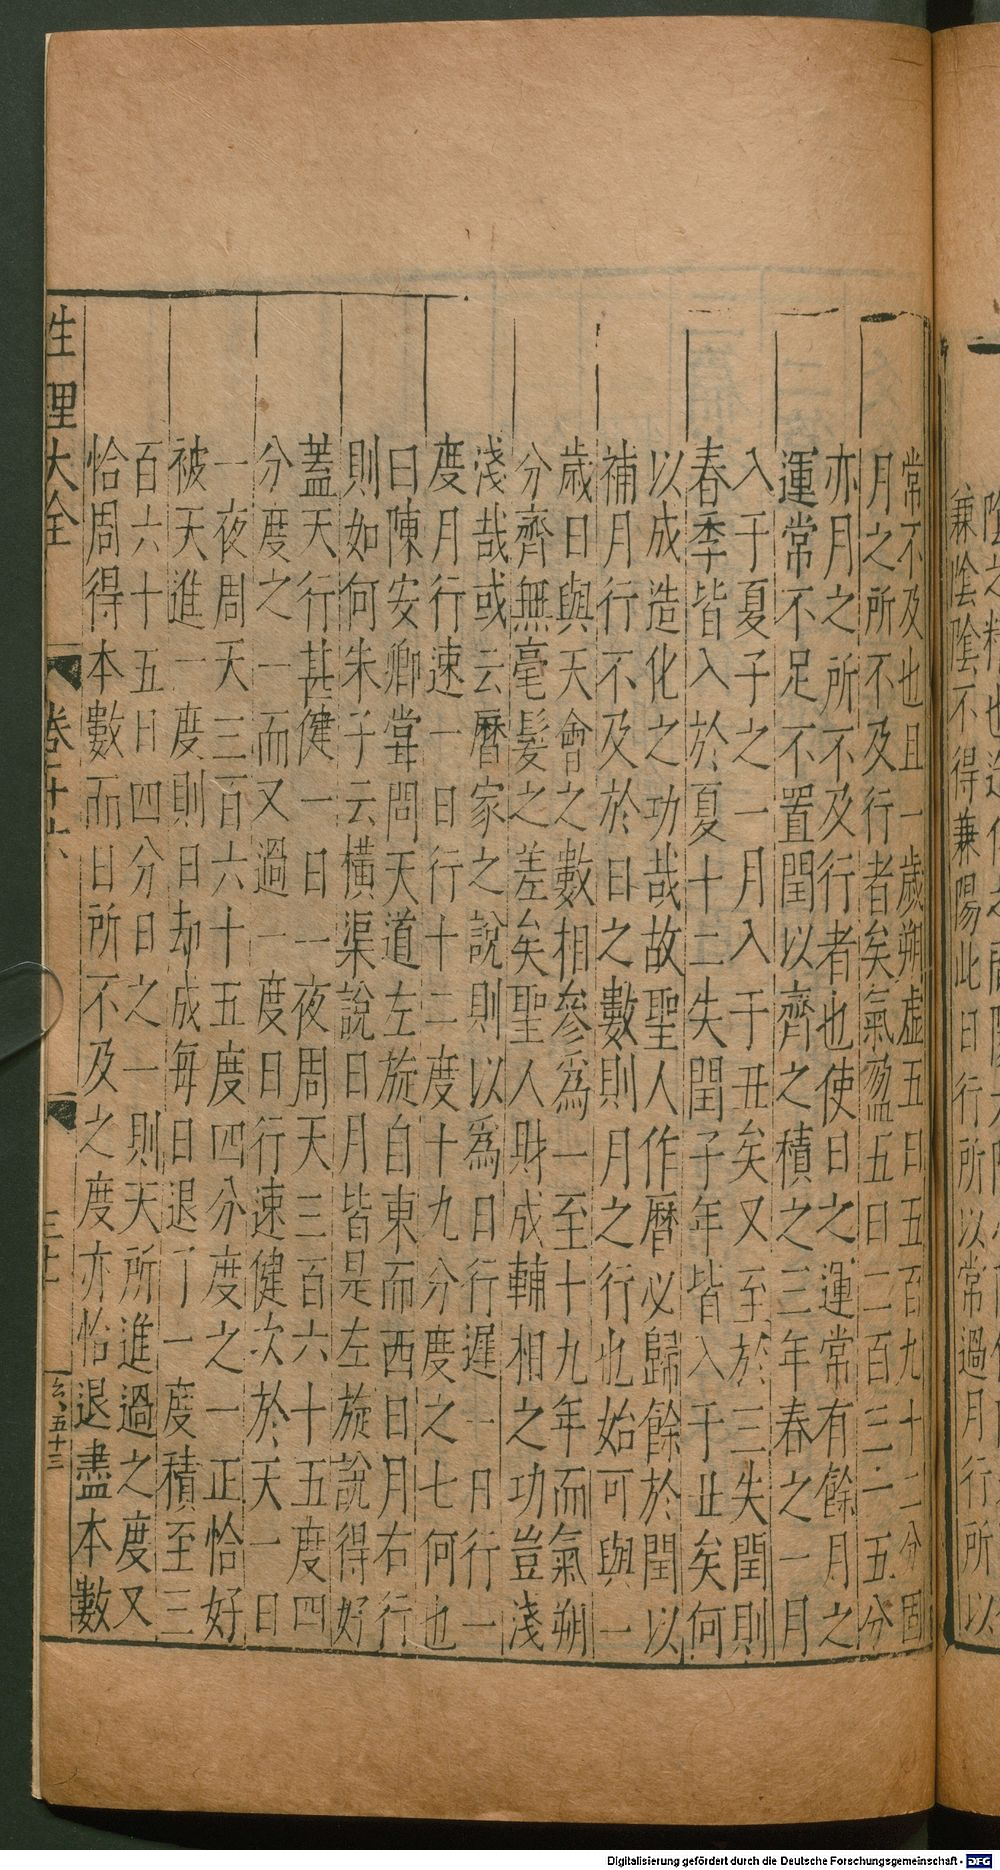 陰之精也
兼陰陰不得兼陽此日行所以常過月行所以
常不及也且一歲朔虛五日五百九十二分固
月之所不及行者矣氣盈五日二百三十五分
亦月之所不及行者也使日之運常有餘月之
運常不足不置閏以齊之積之三年春之一月
入于夏子之一月入于丑矣又至於三失閏則
春季皆入於夏十二失閏子年皆入于丑矣何
以成造化之功哉故聖人作曆必歸餘於閏以
補月行不及於日之數則月之行也始可與一
歲日與天會之數相參為一至十九年而氣朔
分齊無毫髮之差矣聖人財成輔相之功豈淺
淺哉或云曆家之說則以為日行遲一日行一
度月行速一日行十二度十九分度之七何也
曰陳安卿嘗問天道左旋自東而西日月右行
則如何朱子云橫渠說日月皆是左旋說得好
蓋天行甚健一日一夜周天三百六十五度四
分度之一而又過一度日行速健次於天一日
一夜周天三百六十五度四分度之一正恰好
被天進一度則日却成每日退了一度積至三
百六十五日四分日之一則天所進過之度又
恰周得本數而日所不及之度亦恰退盡本數
性理大全
卷二十六
三十
六、五十三
Digitalisierung gefördert durch die Deutsche Forschungsgemeinschaft - DFG